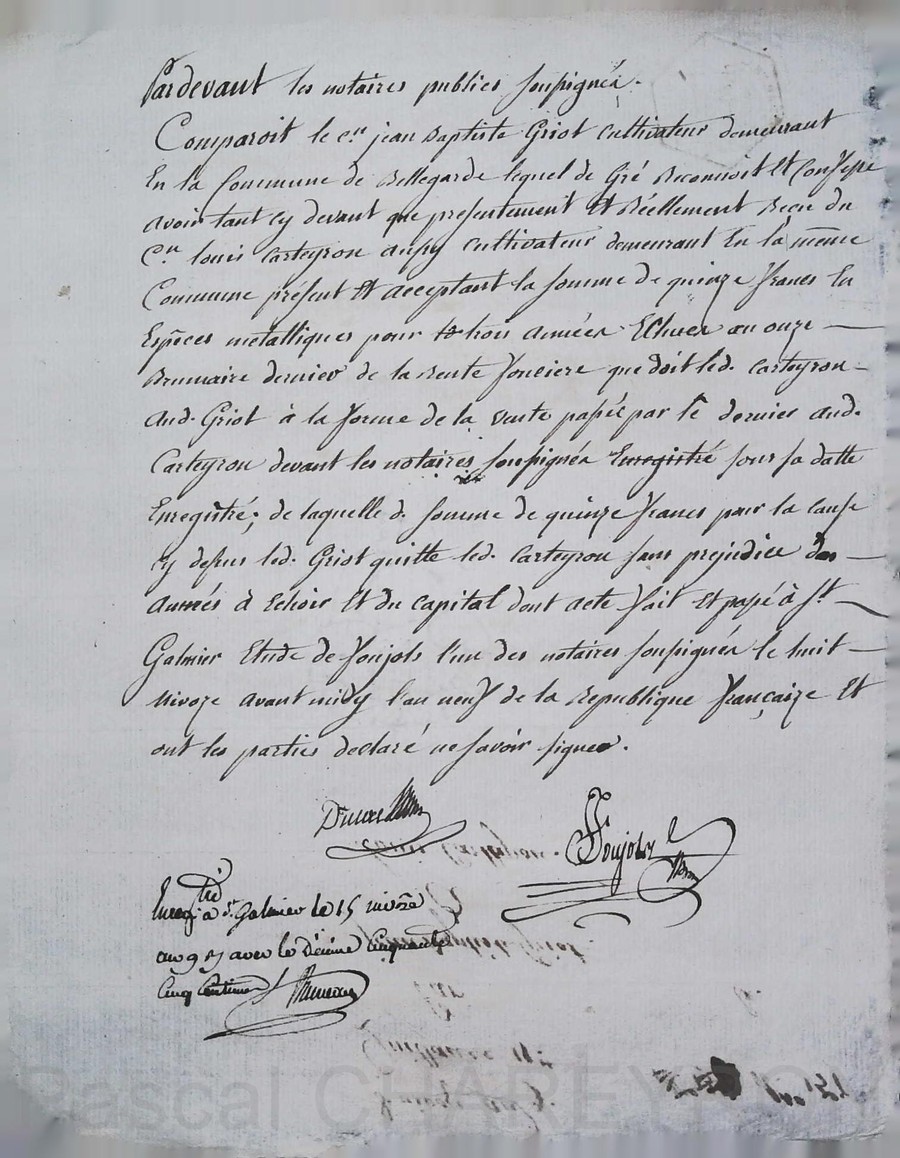 Pardevant les notaires publics soussignés.
Comparoit le c.en jean Baptiste Griot cultivateur demeurant
En la Commune de Bellegarde lequel de Gré Reconnoit Et Confesse
avoir tant cy devant que presentement Et Réellement Recu du
C.en louis Carteyron aussy cultivateur demeurant En la même
Commune présent Et acceptant la somme de quinze francs En
Espèces métalliques pour trois années Echues au onze
Brumaire dernier de la Rente fonciere que doit led. Carteyron
aud. Griot à la forme de la vente passée par le dernier aud.
Carteyron devant les notaires soussignés Enregistré sous sa datte
Enregistré; de laquelle d. somme de quinze francs pour la cause
cy dessus led. Griot quitte led. Carteyron sans prejudice des
années à Echoir Et du capital dont acte fait Et passé à S.t
Galmier Etude de foujols l'un des notaires soussignés le huit
Nivoze avant midy l'an neuf de la Republique française Et
ont les parties declaré ne savoir signer.
foujols
Enregtré à St. Galmier le 15 nivôse
an 9 Rj avec le Décime Cinquante
Cinq Centimes
Pascal CHAREYRON